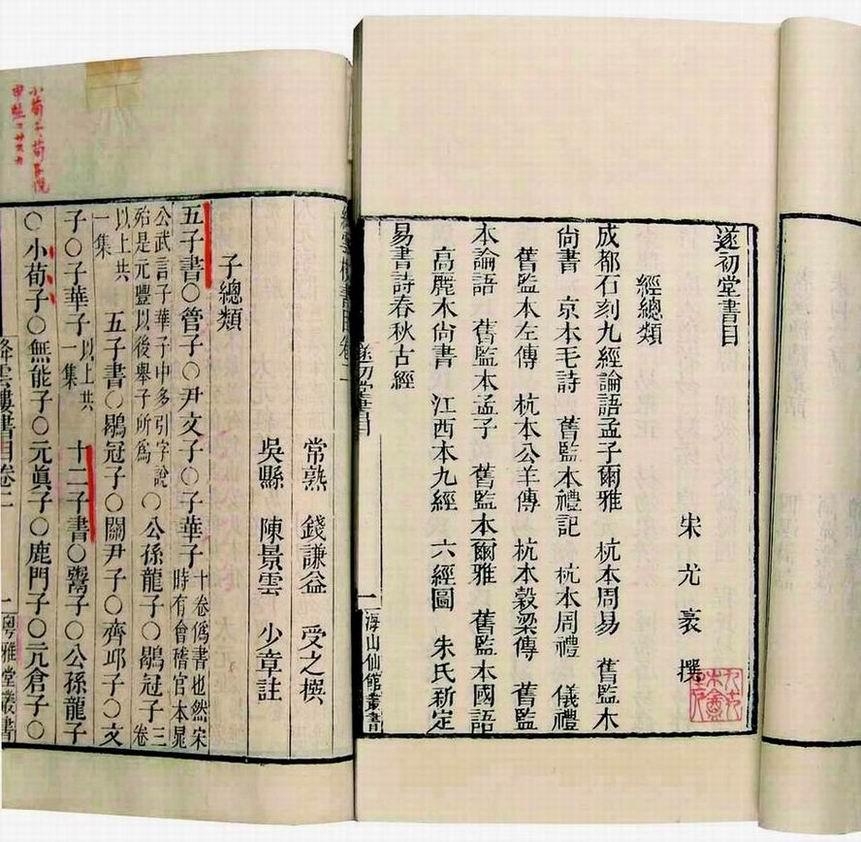 遂初堂書目
宋 尤袤 撰
經總類
成都石刻九經論語孟子爾雅 杭本周易 舊監本
尚書 京本毛詩 舊監本禮記 杭本周禮 儀禮
舊監本左傳 杭本公羊傳 杭本穀梁傳 舊監
本論語 舊監本孟子 舊監本爾雅 舊監本國語
高麗本尚書 江西本九經 六經圖 朱氏新定
易書詩春秋古經
遂初堂書目
一
海山仙館叢書
絳雲樓書目卷二
常熟 錢謙益 受之撰
吳縣 陳景雲 少章註
子總類
五子書〇管子〇尹文子〇子華子十卷僞書也然宋時有會稽官本晁
公武言子華子中多引字說殆是元豐以後舉子所爲〇公孫龍子〇鶡冠子三卷
以上共一集 五子書〇鶡冠子〇關尹子〇齊邱子〇文
子〇子華子以上共一集 十二子書〇鬻子〇公孫龍子
〇小荀子〇無能子〇元眞子〇鹿門子〇亢倉子〇
絳雲樓書目卷二
一
粵雅堂叢書
小荀子荀悅